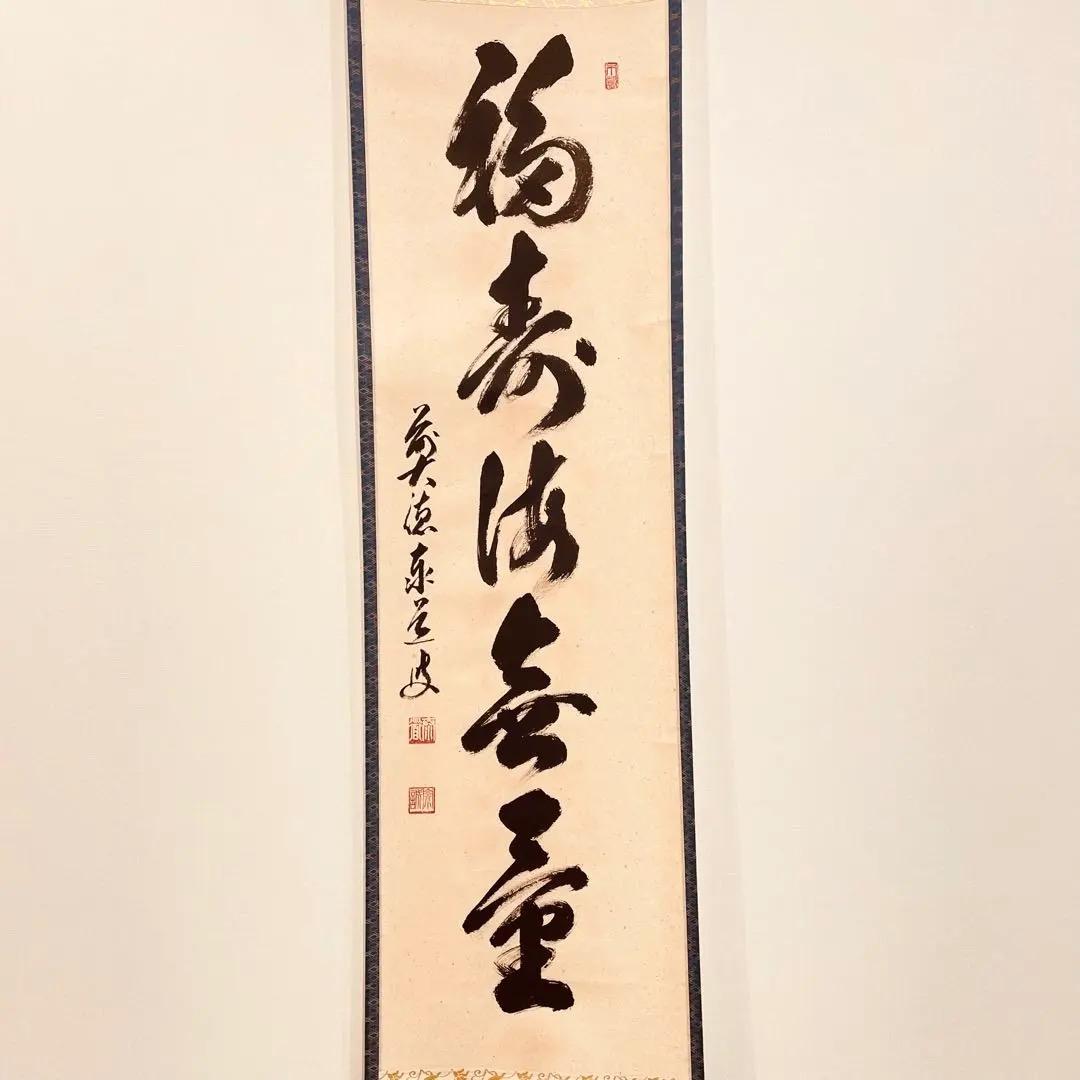 福寿海無量
前大徳泰道叟